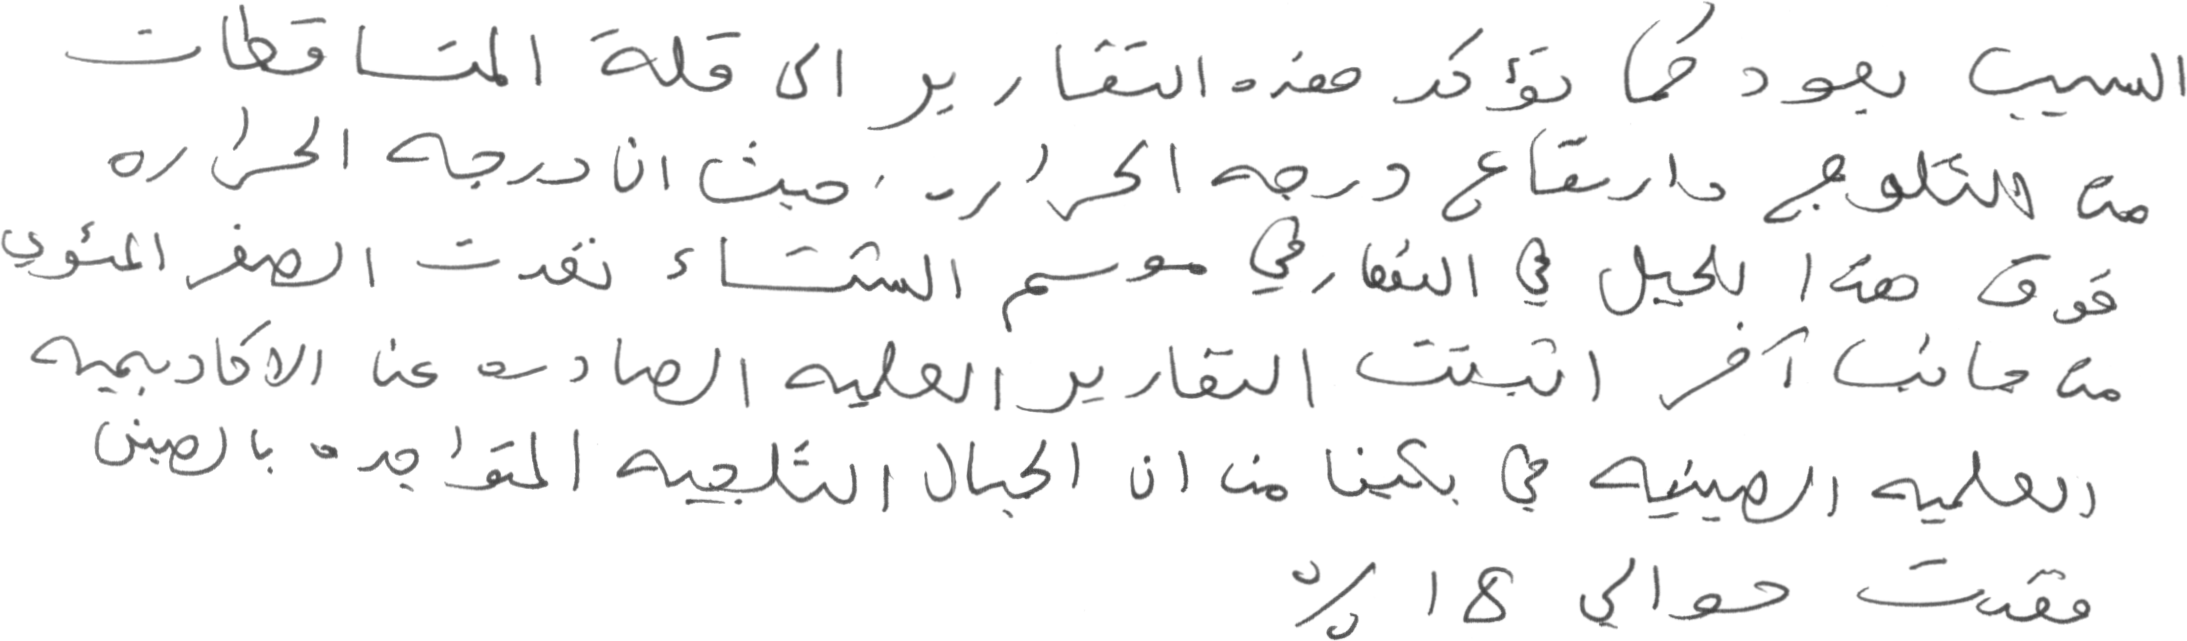 السبب يعود كما تؤكد هذه التقارير الى قلة المتساقطات
من الثلوج وارتفاع درجه الحراره، حيث ان درجه الحراره
فوق هذا الجبل في التقاري في موسم الشتاء نقدت الصفر المئوي
من جانب آخر اثبتت التقارير العلميه الصادره عن الاكاديميه
العلميه الصينيه في بكين من ان الجبال الثلجيه المتواجده بالصين
فقدت حوالي 18 %